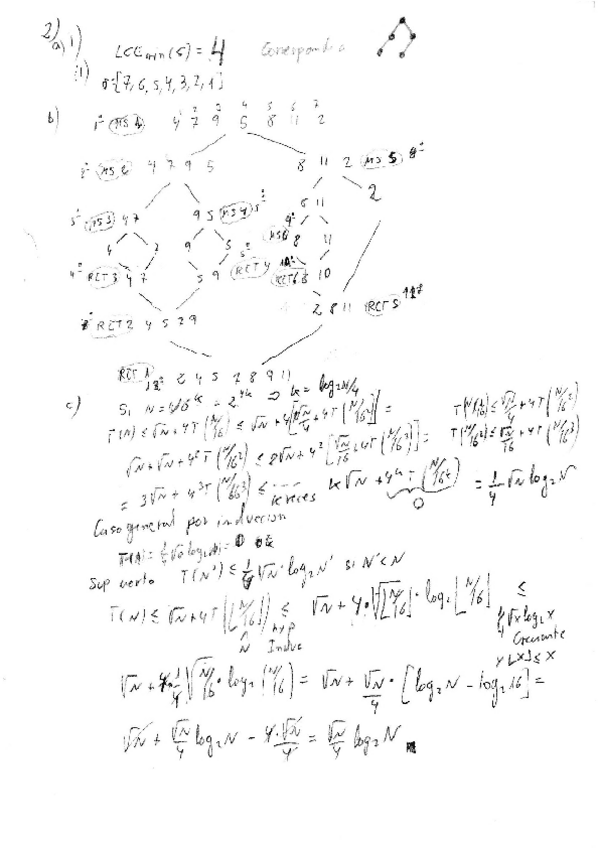 2)
a) 1)
LCE min (5) = 4 Correspond a
(1) σ=[7,6,5,4,3,2,1]
b)
1 2 3 4 5 6 7
1º MS1 4 7 9 5 8 11 2
2º MS2 4 7 9 5 8 11 2 MS5 8º
2
3º MS3 4 7 9 5 MS4 5º 8 11
4 7 9 5 9º MS6 8 11
4º RCT3 4 7 5 9 RCT4 10º RCT6 8 10
2 8 11 RCT5 11º
7º RCT2 4 5 7 9
RCT1 12º 2 4 5 7 8 9 11
c) Si N = 16^k = 2^4k ⇒ k = log₂N/4
T(N) ≤ √N + 4T(N/16) ≤ √N + 4[√N/4 + 4T(N/16²)] = T(N/16) ≤ √N/4 + 4T(N/16²)
√N + √N + 4²T(N/16²) ≤ 2√N + 4²[√N/16 + 4T(N/16³)] = T(N/16²) ≤ √N/16 + 4T(N/16³)
= 3√N + 4³T(N/16³) ≤ .... k veces k√N + 4^k T(N/16^k) = 1/4 √N log₂N
0
Caso general por induccion
T(1) = 1/4 √1 log₂1 = 0 ok
Sup cierto T(N') ≤ 1/4 √N' log₂N' si N' < N
T(N) ≤ √N + 4T(⌊N/16⌋) ≤ √N + 4·1/4 √⌊N/16⌋ · log₂⌊N/16⌋ ≤
N' hyp Induc
1/4 √x log₂x
Creciente
y ⌊x⌋ ≤ x
√N + 4·1/4 √N/16 · log₂(N/16) = √N + √N/4 · [log₂N - log₂16] =
√N + √N/4 log₂N - 4·√N/4 = √N/4 log₂N